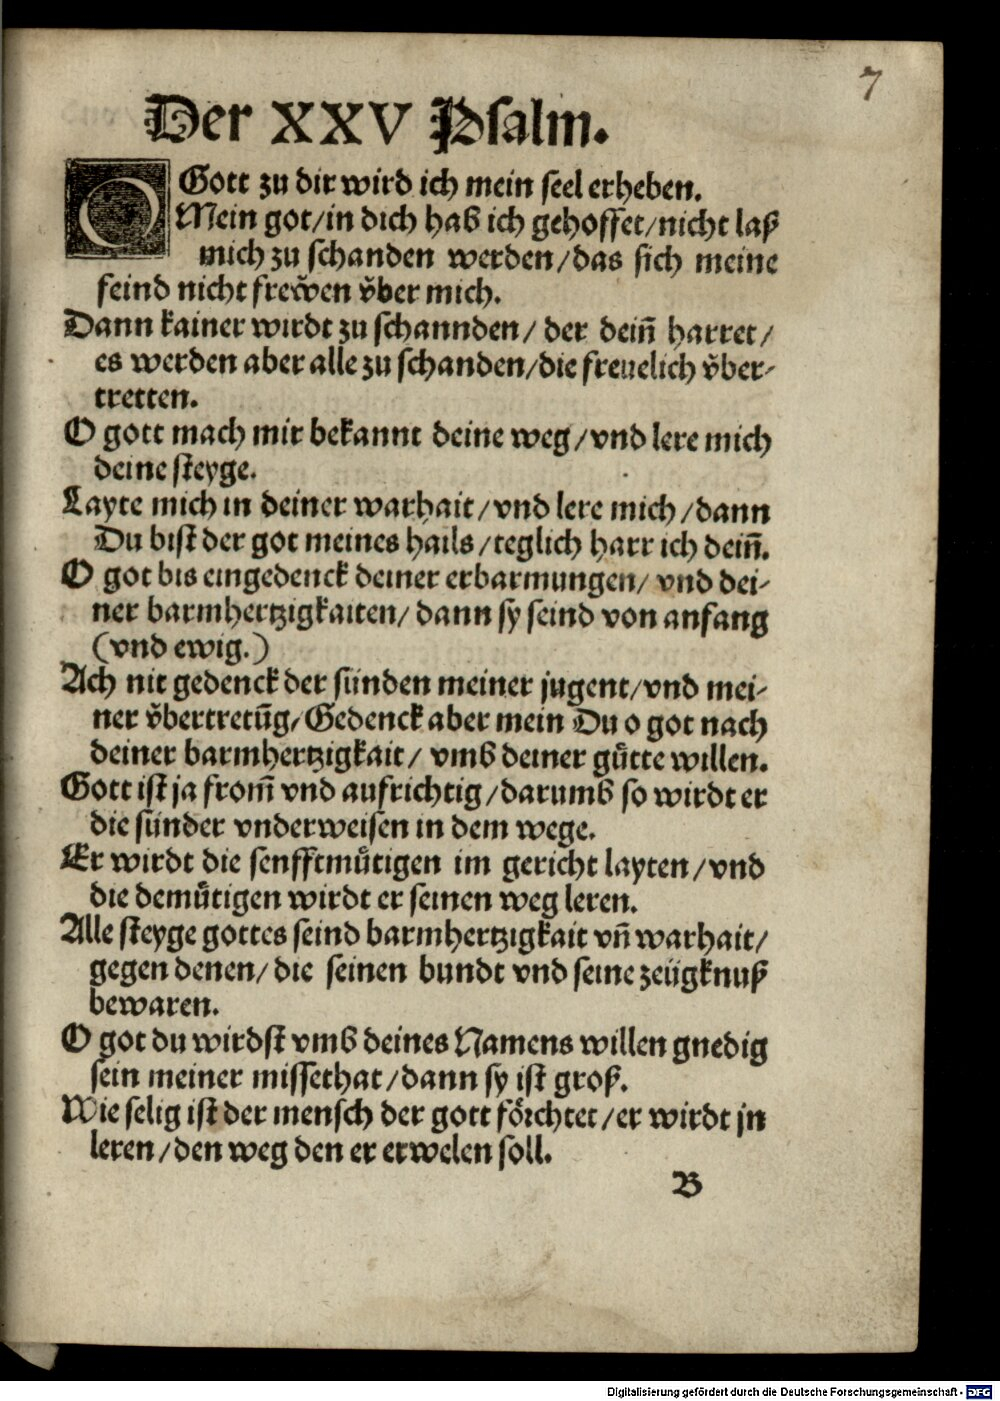 7
Der XXV Psalm.
O Gott zu dir wird ich mein seel erheben.
Mein got/in dich hab ich gehoffet/nicht laß
mich zu schanden werden/das sich meine
feind nicht freẅen v̈ber mich.
Dann kainer wirdt zu schannden/ der dein̄ harret/
es werden aber alle zu schanden/die freuelich v̈ber-
tretten.
O gott mach mir bekannt deine weg/vnd lere mich
deine steyge.
Layte mich in deiner warhait/vnd lere mich/dann
Du bist der got meines hails/teglich harr ich dein̄.
O got bis eingedenck deiner erbarmungen/ vnd dei-
ner barmhertzigkaiten/ dann sy seind von anfang
(vnd ewig.)
Ach nit gedenck der sünden meiner jugent/vnd mei-
ner v̈bertretūg/Gedenck aber mein Du o got nach
deiner barmhertzigkait/ vmb deiner guͤtte willen.
Gott ist ja from̄ vnd aufrichtig/darumb so wirdt er
die sünder vnderweisen in dem wege.
Er wirdt die senfftmuͤtigen im gericht layten/vnd
die demuͤtigen wirdt er seinen weg leren.
Alle steyge gottes seind barmhertzigkait vn̄ warhait/
gegen denen/ die seinen bundt vnd seine zeügknuß
bewaren.
O got du wirdst vmb deines Namens willen gnedig
sein meiner missethat/dann sy ist groß.
Wie selig ist der mensch der gott foͤrchtet/er wirdt jn
leren/den weg den er erwelen soll.
B
Digitalisierung gefördert durch die Deutsche Forschungsgemeinschaft - DFG